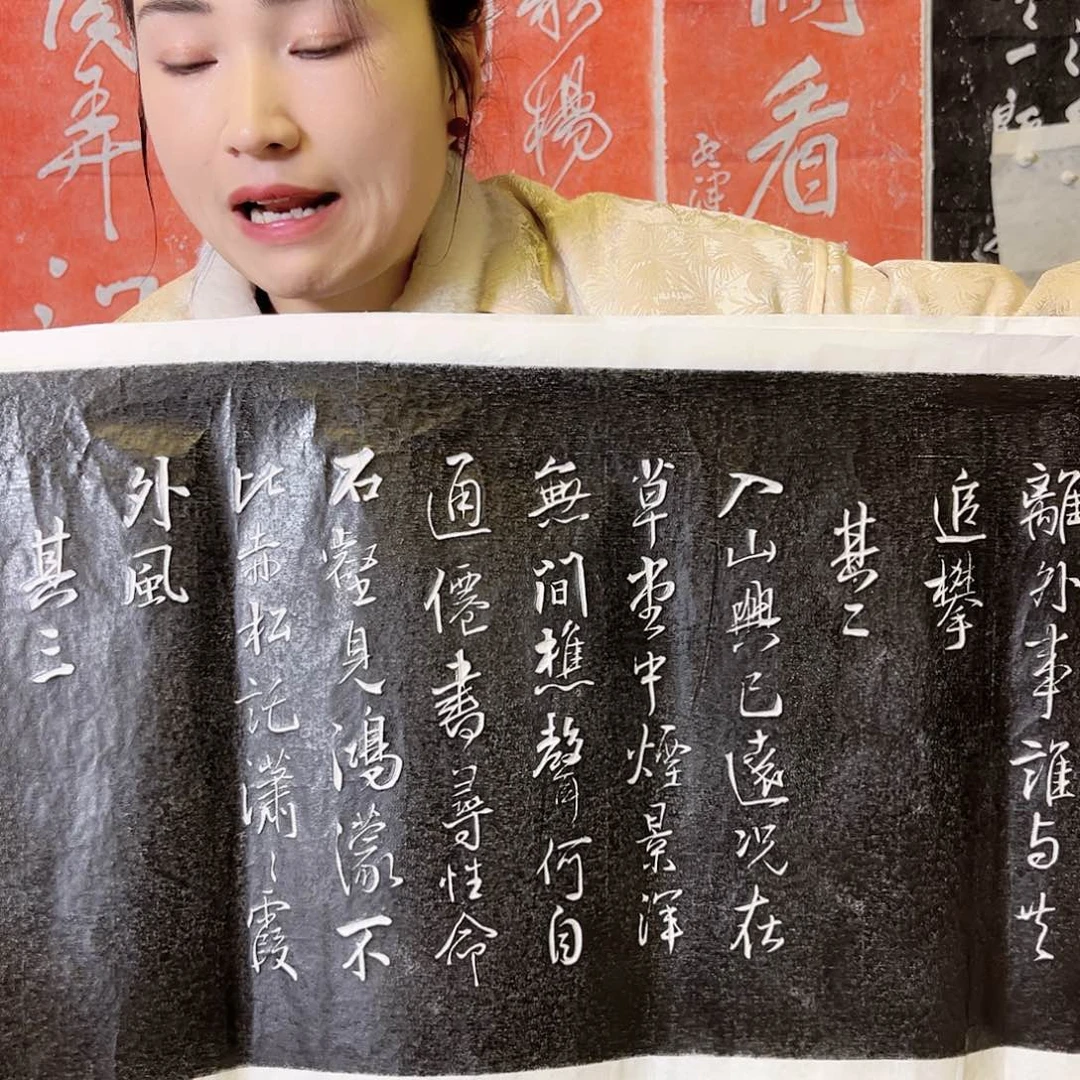 離外事誰与共
追攀
其二
入山興已遠況在
草堂中煙景渾
無間樵聲何自
通僊書尋性命
石壑見鴻濛不
比赤松託瀟〻霞
外風
其三
看
楊
弄